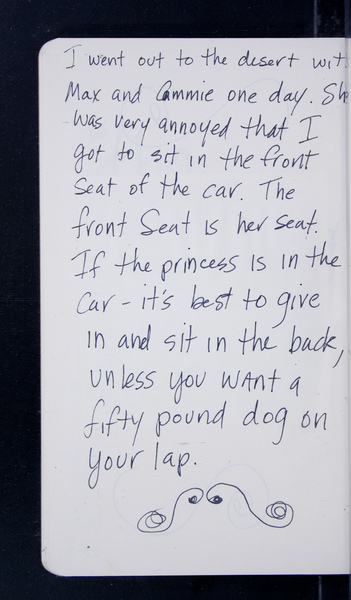 I went out to the desert wit
Max and Cammie one day. Sh
was very annoyed that I
got to sit in the front
seat of the car. The
front Seat is her seat.
If the princess is in the
car - it's best to give
in and sit in the back,
unless you want a
fifty pound dog on
your lap.